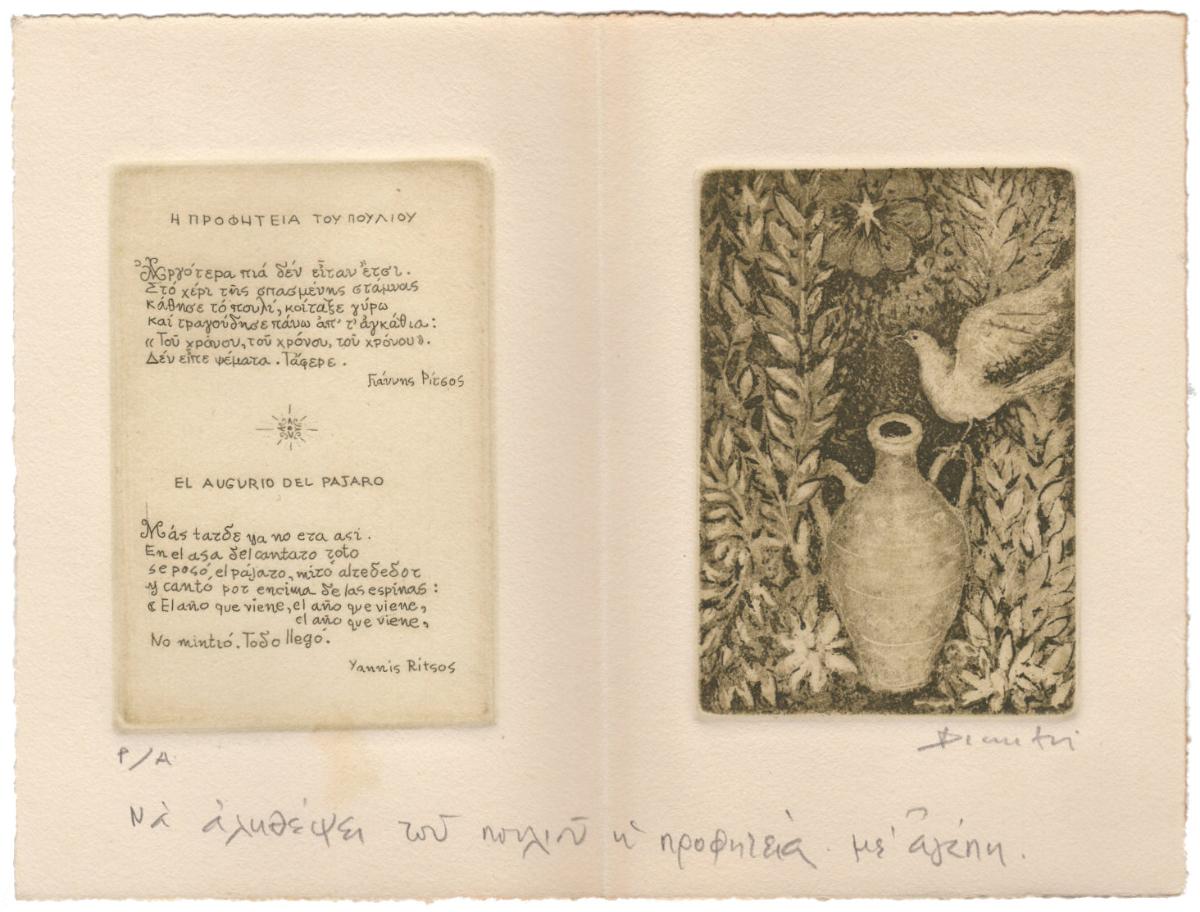 Η ΠΡΟΦΗΤΕΙΑ ΤΟΥ ΠΟΥΛΙΟΥ
Ἀργότερα πιά δέν εἶταν ἔτσι.
Στό χέρι τῆς σπασμένης στάμνας
κάθησε τό πουλί, κοίταξε γύρω
καί τραγούδησε πάνω ἀπ' τ' ἀγκάθια:
«Τοῦ χρόνου, τοῦ χρόνου, τοῦ χρόνου».
Δέν εἶπε ψέματα. Τἄφερε.
Γιάννης Ρίτσος
EL AUGURIO DEL PAJARO
Más tarde ya no era asi.
En el asa del cantaro roto
se posó, el pájaro, miró alrededor
y cantó por encima de las espinas:
«El año que viene, el año que viene,
el año que viene,
No mintió. Todo llegó.
Yannis Ritsos
P/A
Dimitri
Νὰ ἀληθέψει τοῦ πουλιοῦ ἡ προφητεία. μὲ ἀγάπη.